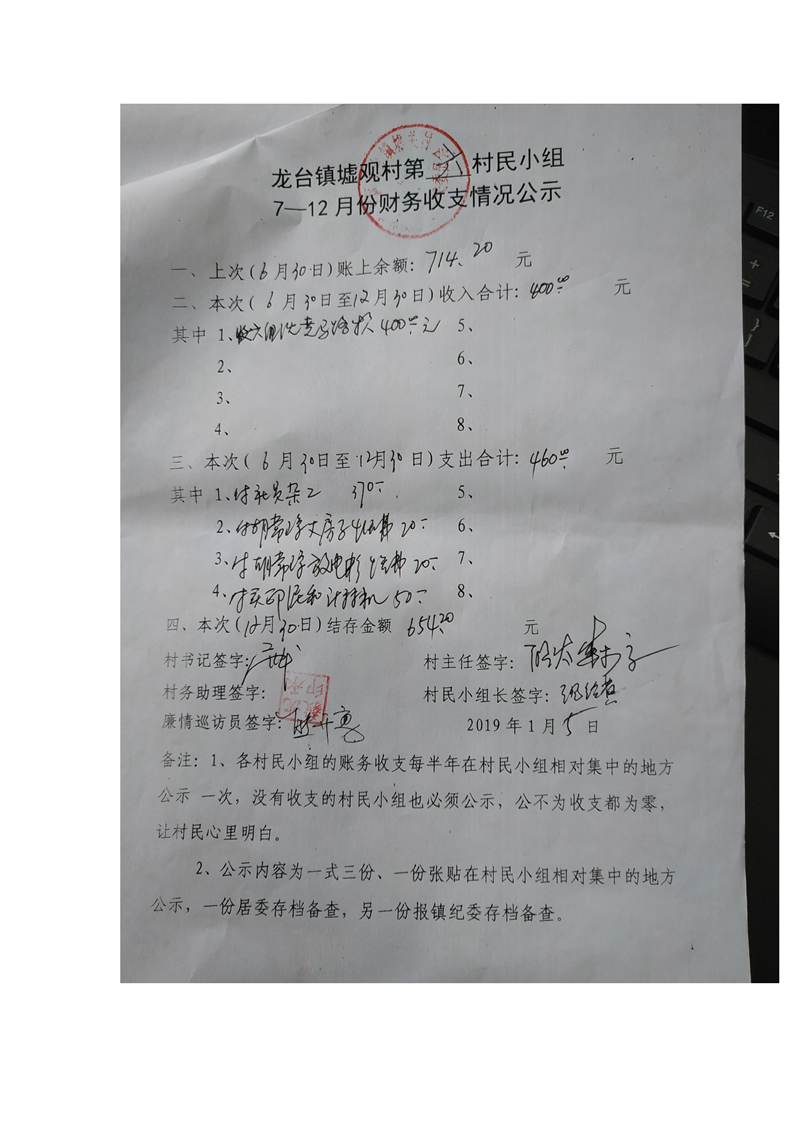 龙台镇墟观村第六村民小组
7—12月份财务收支情况公示
一、上次(6月30日)账上余额:714.20 元
二、本次(6月30日至12月30日)收入合计:400.00 元
其中 1、收六组 400.00元 5、
2、 6、
3、 7、
4、 8、
三、本次(6月30日至12月30日)支出合计:460.00 元
其中 1、付社员杂工 370.- 5、
2、付胡常 房子 费 20.- 6、
3、付胡常 放电影 费 20.- 7、
4、付 50.- 8、
四、本次(12月30日)结存金额 654.20 元
村书记签字: 村主任签字:
村务助理签字: 村民小组长签字:
廉情巡访员签字: 2019年1月5日
备注:1、各村民小组的账务收支每半年在村民小组相对集中的地方
公示 一次,没有收支的村民小组也必须公示,公不为收支都为零,
让村民心里明白。
2、公示内容为一式三份、一份张贴在村民小组相对集中的地方
公示,一份居委存档备查,另一份报镇纪委存档备查。
F12